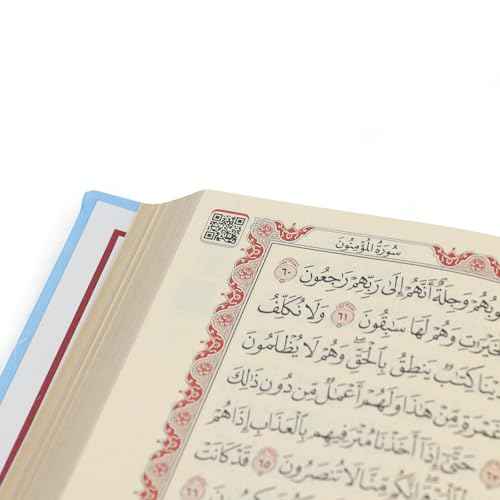 سُورَةُ المُؤْمِنُونَ
وَجِلَةٌ أَنَّهُمْ إِلَىٰ رَبِّهِمْ رَاجِعُونَ ٦٠
وَهُمْ لَهَا سَابِقُونَ ٦١ وَلَا نُكَلِّفُ
كِتَابٌ يَنطِقُ بِالْحَقِّ وَهُمْ لَا يُظْلَمُونَ
مِّنْ هَٰذَا وَلَهُمْ أَعْمَالٌ مِّن دُونِ ذَٰلِكَ
حَتَّىٰ إِذَا أَخَذْنَا مُتْرَفِيهِم بِالْعَذَابِ إِذَا هُمْ
مِّنَّا لَا تُنصَرُونَ ٦٥ قَدْ كَانَتْ